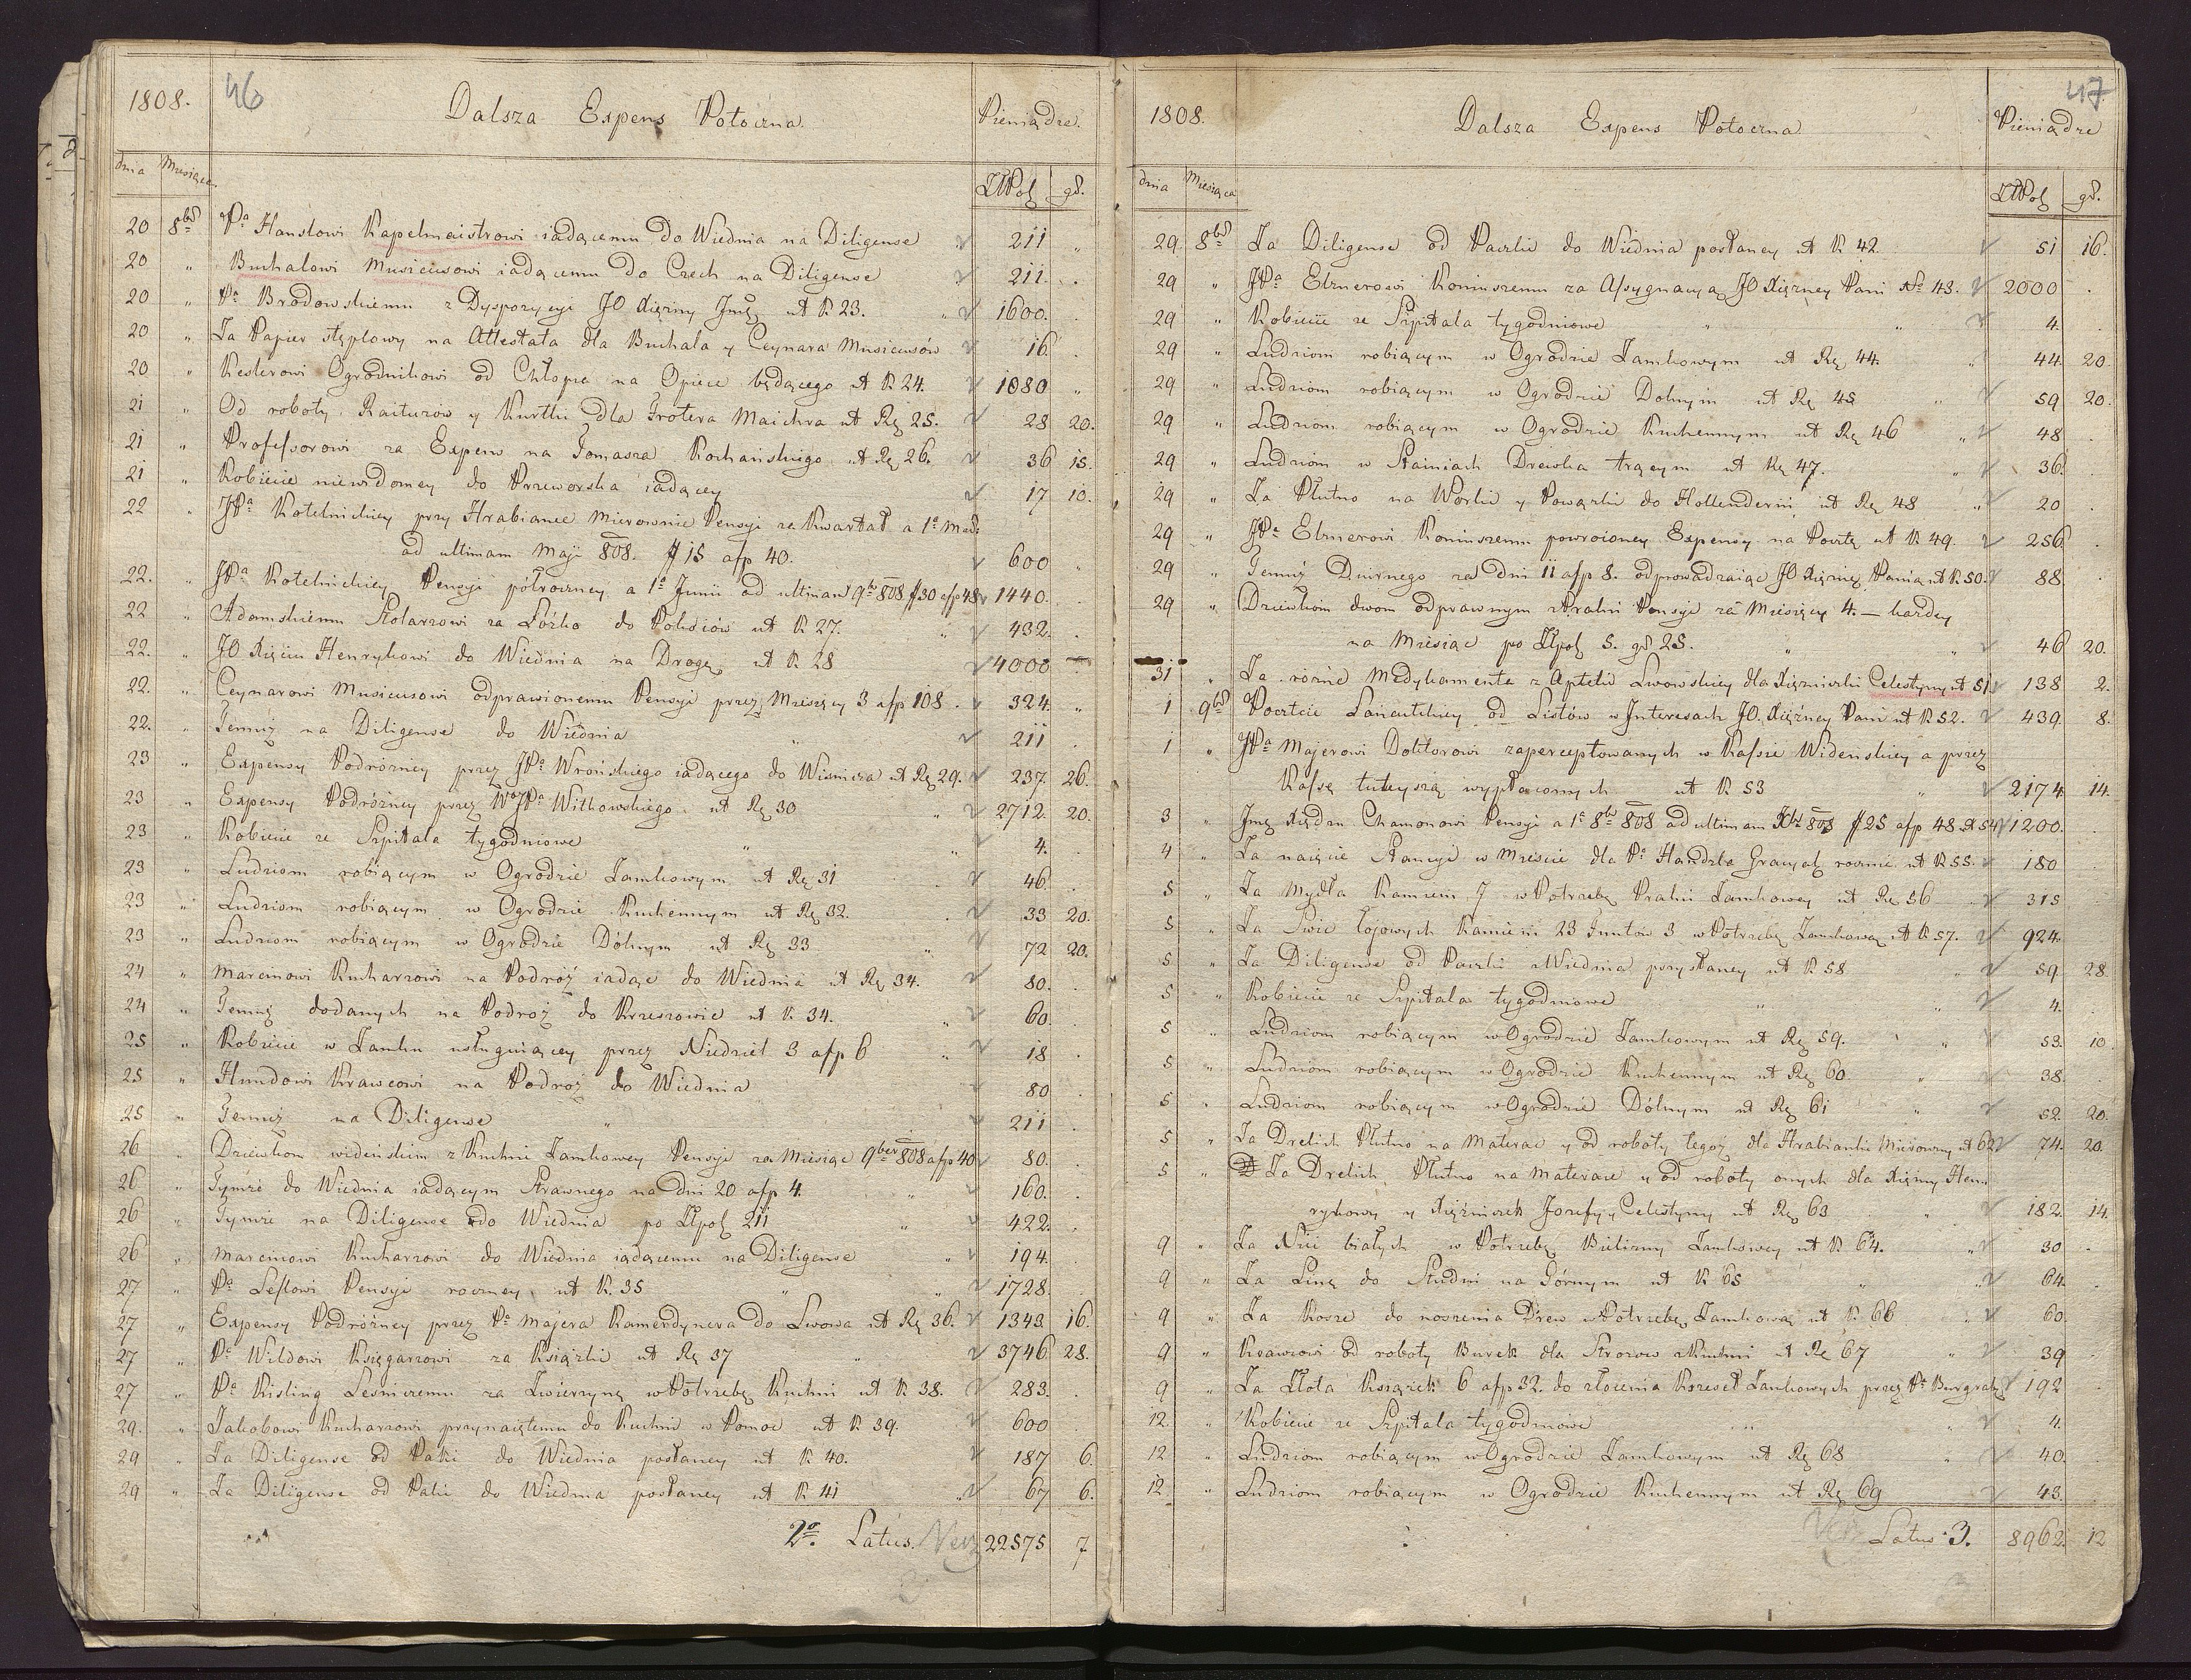 1808. 46 Dalsza Expens Potoczna. Pieniądze.
dnia Miesiąca ZłPol gr.
20 8br Pa Hanslowi Kapelmeistrowi iadącemu do Wiednia na Diligense 211 "
20 " Buchalowi Musicusowi iadącemu do Czech na Diligense 211. .
20 " Pa Brodowskiemu z Dyspozycyi JO Xiężny Jmę ut R 23. " 1600. .
20 " Za Papier stęplowy na Attestata dla Buchala y Ceynara Musicusów 16. .
20 " Keslerowi Ogrodnikowi od Chłopca na Opiece będącego ut R 24. 1080 "
21 " Od roboty Raituzów y Kurtki dla Frotera Maichra ut Rę 25. 28 20.
21 " Professorowi za Expens na Tomasza Kochańskiego ut Rę 26. 36 15.
21 " Kobiecie niewidomey do Przeworska iadącey 17 10.
22 " JPa Kotelnickiey przy Hrabiance Mierownie Pensyi za Kwartał a 1a Mar:
ad ultimam Maji 808. # 15 afp 40. 600 "
22. " JPa Kotelnickiey Pensyi półroczney a 1a Junii ad ultimam 9br 808 # 30 afp 48 1440. .
22 " Adamskiemu Stolarzowi za Łóżko do Pokoiów ut R 27. " 432. .
22. " JO Xięciu Henrykowi do Wiednia na Drogę ut R 28 4000
22. " Ceynarowi Musicusowi odprawionemu Pensyi przez Miesięcy 3 afp 108. 324. "
22. " Temuż na Diligense do Wiednia " 211 .
23 " Expensy Podrózney przez JPa Wrońskiego iadącego do Wisnicza ut Rę 29. 237. 26.
23 " Expensy Podróżney przez WJPa Witkowskiego ut Rę 30 " 2712. 20.
23 " Kobiecie ze Szpitala tygodniowe " " 4. .
23 " Ludziom robiącym w Ogrodzie Zamkowym ut Rę 31 . 46. .
23 " Ludziom robiącym w Ogrodzie Kuchennym ut Rę 32. . 33 20.
23 " Ludziom robiącym w Ogrodzie Dólnym ut Rę 33 " 72 20.
24 " Marcinowi Kucharzowi na Podróż iadąc do Wiednia ut Rę 34. 80. .
24 " Temuż dodanych na Podroż do Krzeszowic ut R 34. " 60. .
25 " Kobiecie w Zamku usługuiącey przez Niedziel 3 afp 6 " 18 .
25 " Hundowi Krawcowi na Podroż do Wiednia 80 .
25 " Temuż na Diligense " 211 .
26 " Dziewkom wideńskim z Kuchni Zamkowey Pensyi za Miesiąc 9ber 808 afp 40 80. .
26 " Tymże do Wiednia iadącym Strawnego na dni 20 afp 4. " 160. .
26 " Tymże na Diligense do Wiednia po Złpol 211 " 422. .
26 " Marcinowi Kucharzowi do Wiednia iadącemu na Diligense " 194. .
27 " Pa Leflowi Pensyi roczney ut R. 35 " " 1728. .
27 " Expensy Podróżney przez Pa Majera Kamerdynera do Lwowa ut Rę 36. 1343. 16.
27 " Pa Wildowi Księgarzowi za Książki ut Rę 37 " 3746. 28.
27 " Pa Kisling Lesniczemu za Zwierzynę w Potrzebę Kuchni ut R 38. 283. .
29. " Jakobowi Kucharzowi przynaiętemu do Kuchni w Pomoc ut R 39. 600 .
29 " Za Diligense od Paki do Wiednia posłaney ut R 40. 187 6.
29 " Za Diligense od Paki do Wiednia posłaney ut R 41 " 67 6.
2o. Latus. 22575 7
1808. 47 Dalsza Expens Potoczna Pieniądze
dnia Miesiąca ZłPol gr.
29. 8br Za Diligense od Paczki do Wiednia posłaney ut R 42. 51 16.
29 " JPa Elznerowi Koniuszemu za Assygnacyą JO Xiężney Pani No 43. 2000 .
29 " Kobiecie ze Szpitala tygodniowe " " 4. .
29 " Ludziom robiącym w Ogrodzie Zamkowym ut Rę 44. " 44. 20.
29 " Ludziom robiącym w Ogrodzie Dolnym ut Rę 45 " 59 20.
29 " Ludziom robiącym w Ogrodzie Kuchennym ut Rę 46 " 48 .
29 " Ludziom w Stainiach Drewka trącym ut Rę 47. " 36. .
29 " Za Płutno na Worki y Powązki do Hollenderni ut Rę 48 " 20 .
29 " JPa Elznerowi Koniuszemu powroconey Expensy na Pocztę ut R 49. 256. .
29 " Temuż Dziennego za dni 11 afp 8. odprowadzaiąc JO Xiężnę Panią ut R 50. 88. .
29 " Dziewkom dwom odprawnym z Pralni Pensyi za Miesięcy 4. — każdey
na Miesiąc po Złpol 5. gr 25. " " 46 20.
31 " Za rózne Medykamenta z Apteki Lwowskiey dla Xiężniczki Celestyny ut 51. 138 2.
1 9br Poczcie Łańcutskiey od Listów w Interesach JO. Xiężney Pani ut R 52. 439. 8.
1 " JPa Majerowi Doktorowi zaperceptowanych w Kassie Widenskiey a przez
Kassę tuteyszą wypłaconych ut R 53 " 2174. 14.
3 " Jmę Xiędzu Chamonowi Pensyi a 1a 8br 808 ad ultimam Xbr 808 # 25 afp 48 ut 54 1200. .
4 " Za naięcie Stancyi w Mieście dla Pa Handzla Gracyal rocznie ut R 55. 180 .
5 " Za Mydła Kamieni 7 w Potrzebę Pralni Zamkowey ut Rę 56 315 .
5 " Za Swic łojowych Kamieni 23 Funtów 3 w Potrzebę Zamkową ut R 57. 924. .
5 " Za Diligense od Paczki z Wiednia przysłaney ut R 58 " 59 28.
5 " Kobiecie ze Szpitala tygodniowe " " 4. .
5 " Ludziom robiącym w Ogrodzie Zamkowym ut Rę 59. " 53. 10.
5 " Ludziom robiącym w Ogrodzie Kuchennym ut Rę 60. " 38. .
5 " Ludziom robiącym w Ogrodzie Dólnym ut Rę 61 " 52. 20.
5 " Za Drelich Płutno na Materac y od roboty tegoż dla Hrabianki Mierowny ut 62 74. 20.
5 " Za Drelich, Płutno na Materace y od roboty onych dla Xiężny Hen=
rykowy y Xiężniczek Jozefy y Celestyny ut Rę 63 " 182. 14.
9 " Za Nici białych w Potrzebę Bielizny Zamkowey ut R 64. " 30 .
9 " Za Linę do Studni na Górnym ut R 65 " " 64. .
9 " Za Kosze do noszenia Drew w Potrzebę Zamkową ut R 66 " 60. .
9 " Krawcowi od roboty Burek dla Strozow z Kuchni ut Rę 67 " 39 .
9 " Za Złota Książek 6 afp 32. do złocenia Krzeseł Zamkowych przez Pa Burgrab: 192 .
12. " Kobiecie ze Szpitala tygodniowe " " 4. .
12 " Ludziom robiącym w Ogrodzie Zamkowym ut Rę 68 " 40. .
12. " Ludziom robiącym w Ogrodzie Kuchennym ut Rę 69 43. .
Latus 3. 8962. 12